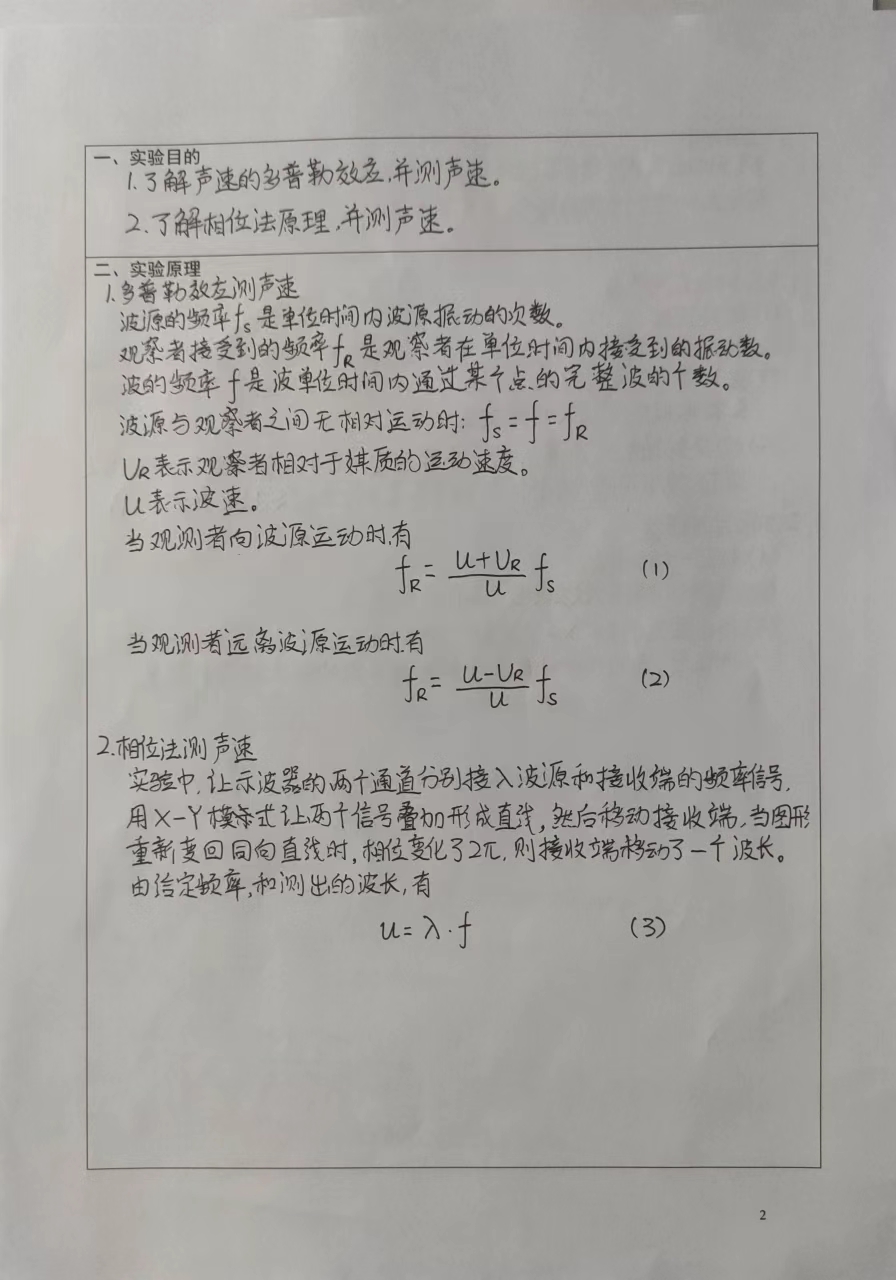 一、实验目的
1.了解声速的多普勒效应,并测声速。
2.了解相位法原理,并测声速。
二、实验原理
1.多普勒效应测声速
波源的频率fₛ是单位时间内波源振动的次数。
观察者接受到的频率f_R是观察者在单位时间内接受到的振动数。
波的频率f是波单位时间内通过某个点的完整波的个数。
波源与观察者之间无相对运动时: fₛ=f=f_R
U_R表示观察者相对于媒质的运动速度。
U表示波速。
当观测者向波源运动时,有
f_R = (U+U_R)/U fₛ (1)
当观测者远离波源运动时,有
f_R = (U-U_R)/U fₛ (2)
2.相位法测声速
实验中,让示波器的两个通道分别接入波源和接收端的频率信号,
用X-Y模式让两个信号叠加形成直线,然后移动接收端,当图形
重新变回同向直线时,相位变化了2π,则接收端移动了一个波长。
由给定频率,和测出的波长,有
u=λ·f (3)
2